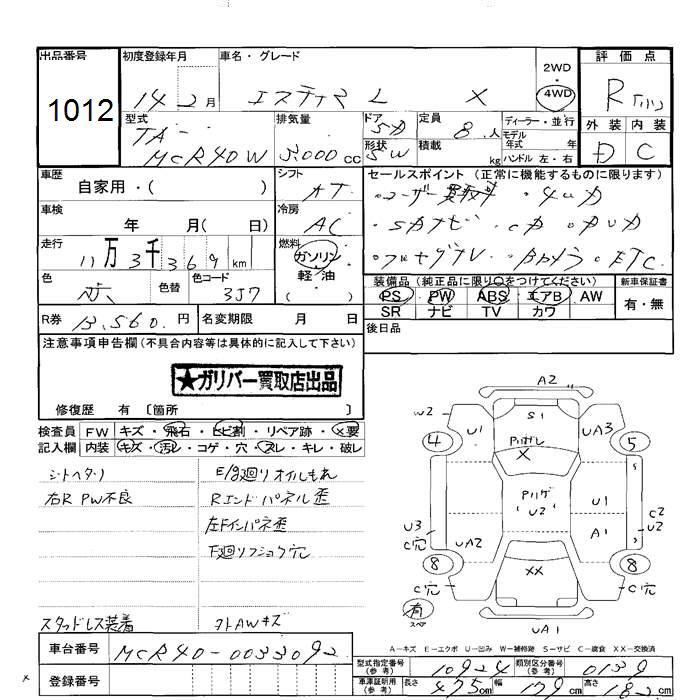 出品番号
1012
初度登録年月
14 2月
車名・グレード
エスティマ L X
2WD
・
4WD
評価点
R
外装 内装
D C
型式
TA-
MCR40W
排気量
3000cc
ドア
5D
形状
5W
定員
8人
積載
kg
ディーラー・並行
モデル
年式 年
ハンドル 左・右
車歴
自家用・( )
シフト
AT
セールスポイント (正常に機能するものに限ります)
・ユーザー買取車 ・4WD
・SDナビ ・CD ・DVD
・フルセグTV ・Bカメラ ・ETC
車検
年 月( 日)
冷房
AC
走行
11万3千369km
燃料
ガソリン
軽・油
( )
色
色替
色コード
3J7
装備品 (純正品に限り○をつけてください)
PS PW ABS エアB AW
SR ナビ TV カワ
新車保証書
有・無
R券 13,560円
名変期限 月 日
後日品
注意事項申告欄 (不具合内容等は具体的に記入して下さい)
★ガリバー買取店出品
修復歴 有 〔箇所 〕
検査員 FW キズ・飛石・ヒビ割・リペア跡・X要
記入欄 内装 キズ・汚レ・コゲ・穴・スレ・キレ・破レ
シートヘタリ
右R PW不良
E/g廻りオイルもれ
Rエンドパネル歪
左Fインパネ歪
下廻リフショク穴
スタッドレス装着
外AWキズ
A2
W2
S1
4
U1
Pハガし
X
UA3
5
Pハゲ
U2
U1
C2
U2
A1
U3
C穴
UA2
8
XX
8
C穴
C穴
有
スペア
UA1
A-キズ E-エクボ U-凹み W-補修跡 S-サビ C-腐食 XX-交換済
車台番号 MCR40-0033092
登録番号
型式指定番号
(参考)
10924
類別区分番号
(参考)
0139
車庫証明用
(参考)
長さ 475cm 幅 179cm 高さ 182cm